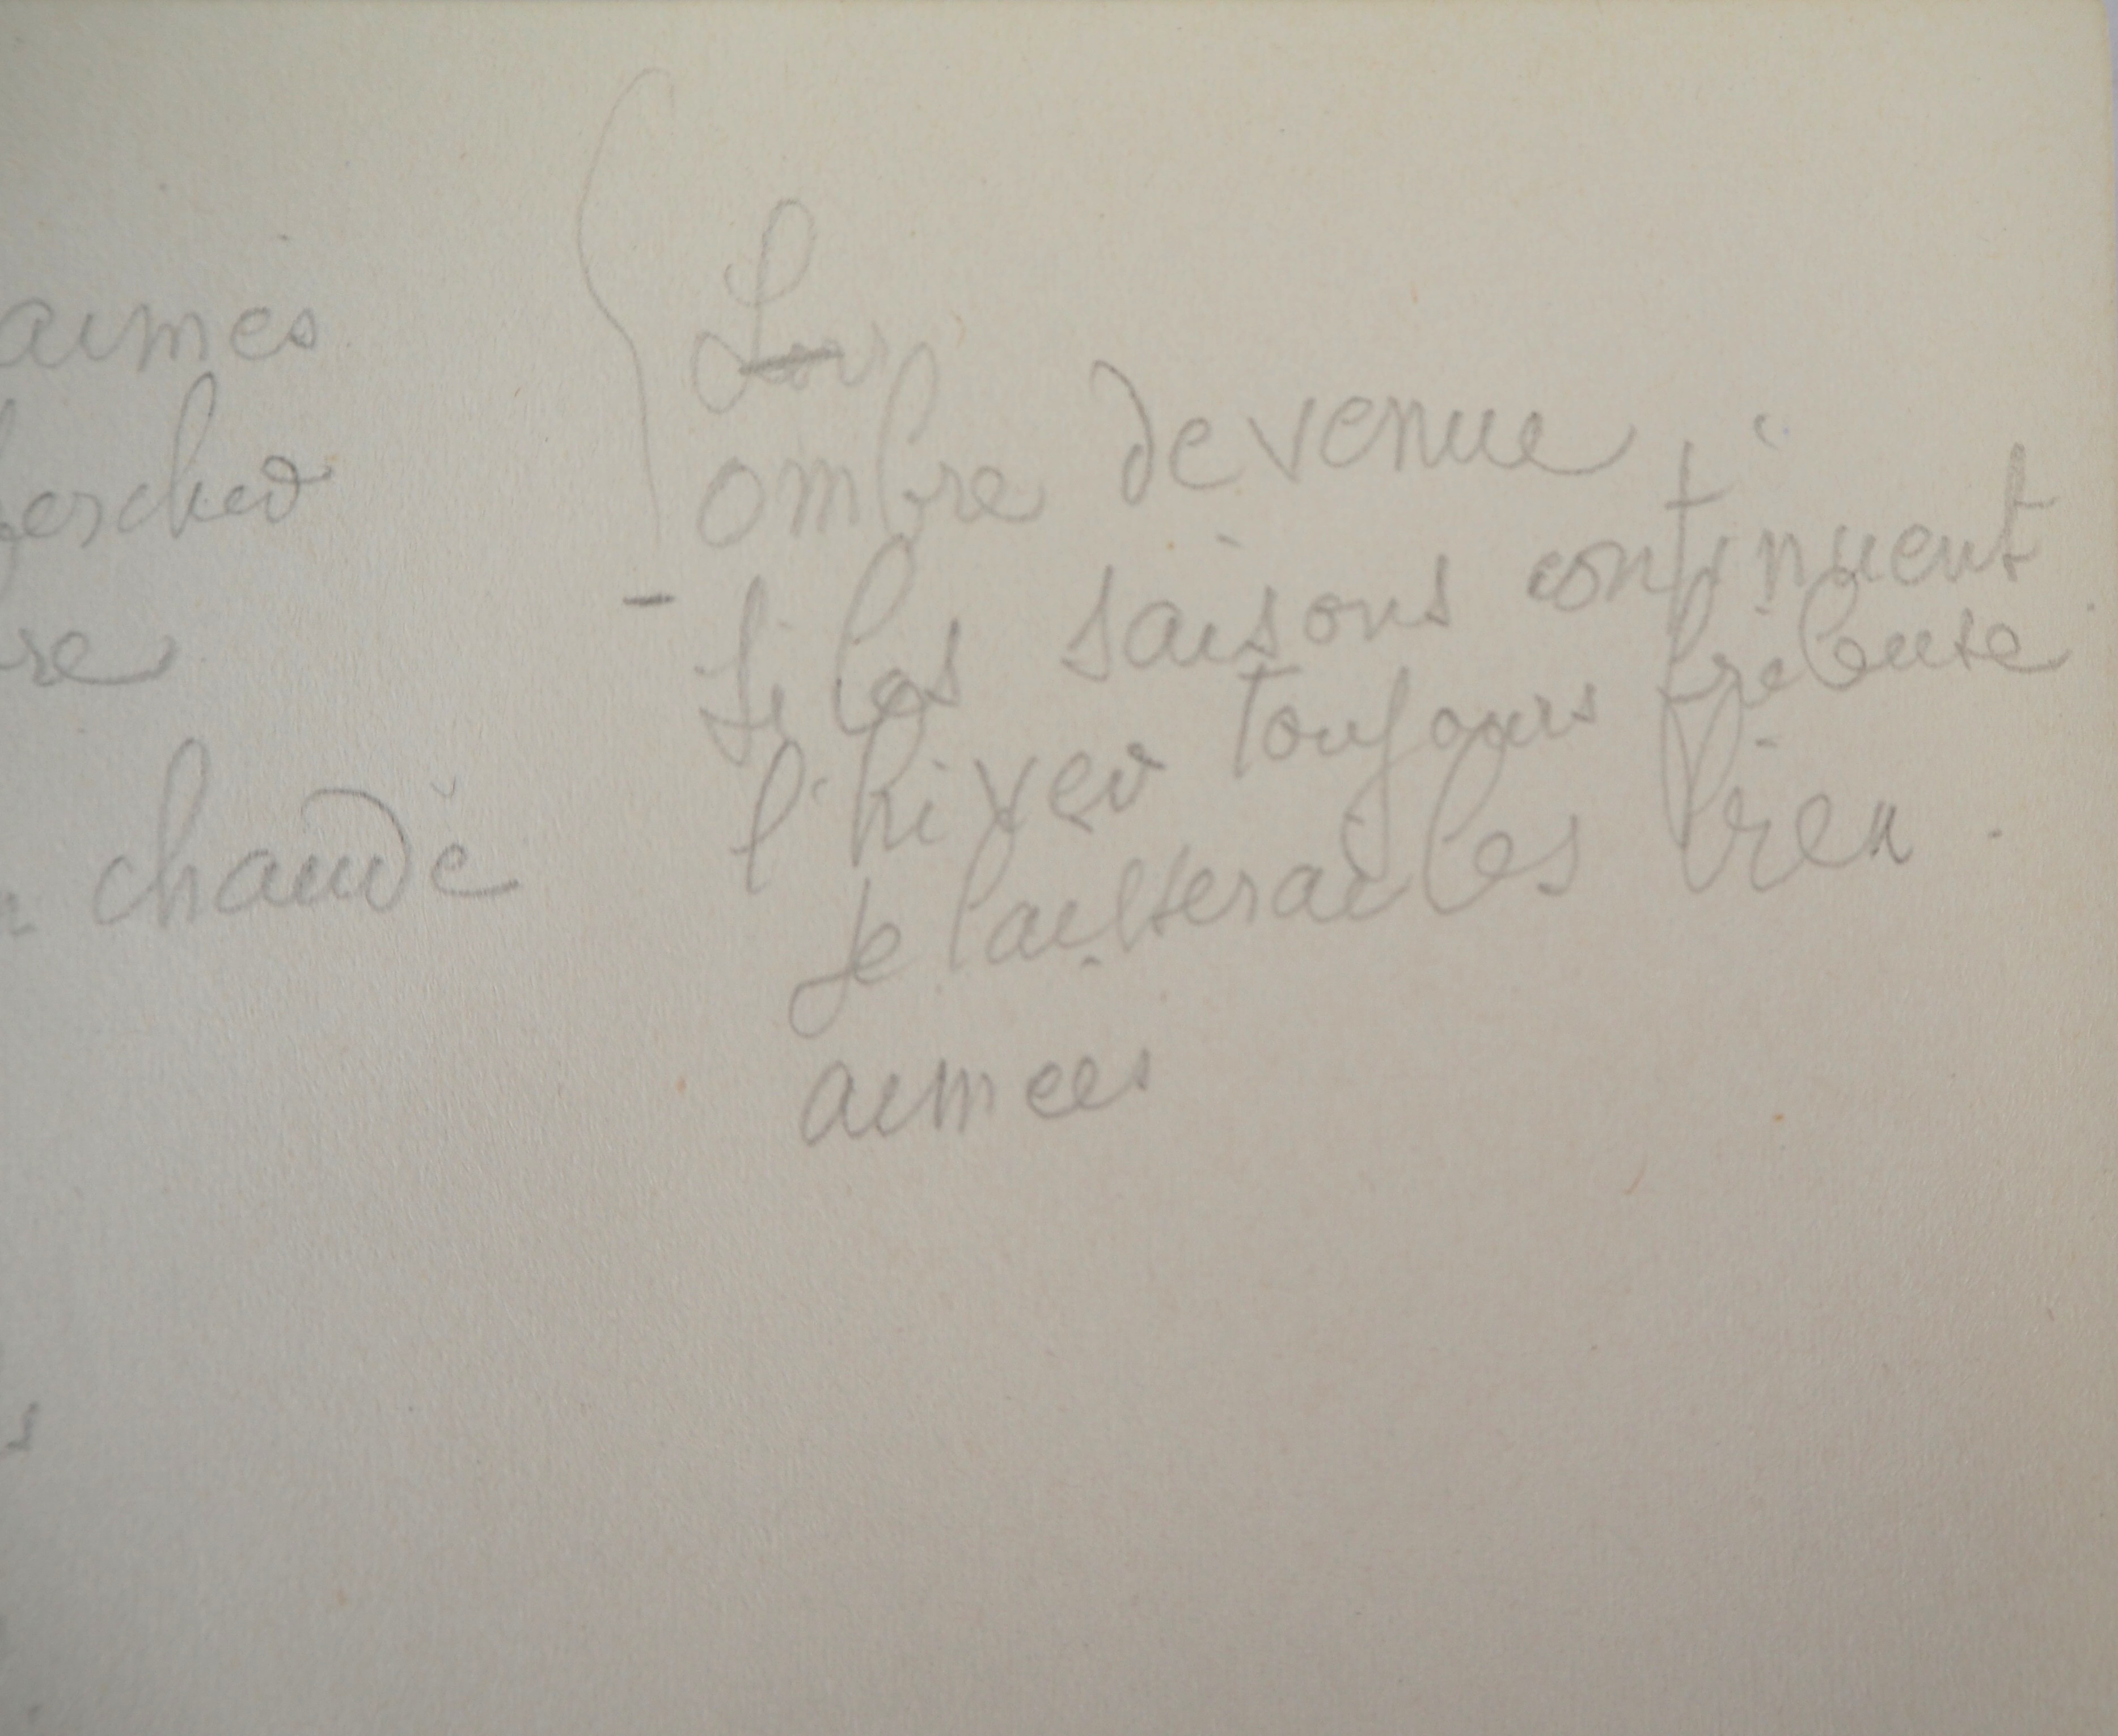 aimés
chercher
re
chaude
ombre devenue
- Si les saisons continuent
l'hiver toujours frileuse
Je laisserai les bien
aimées